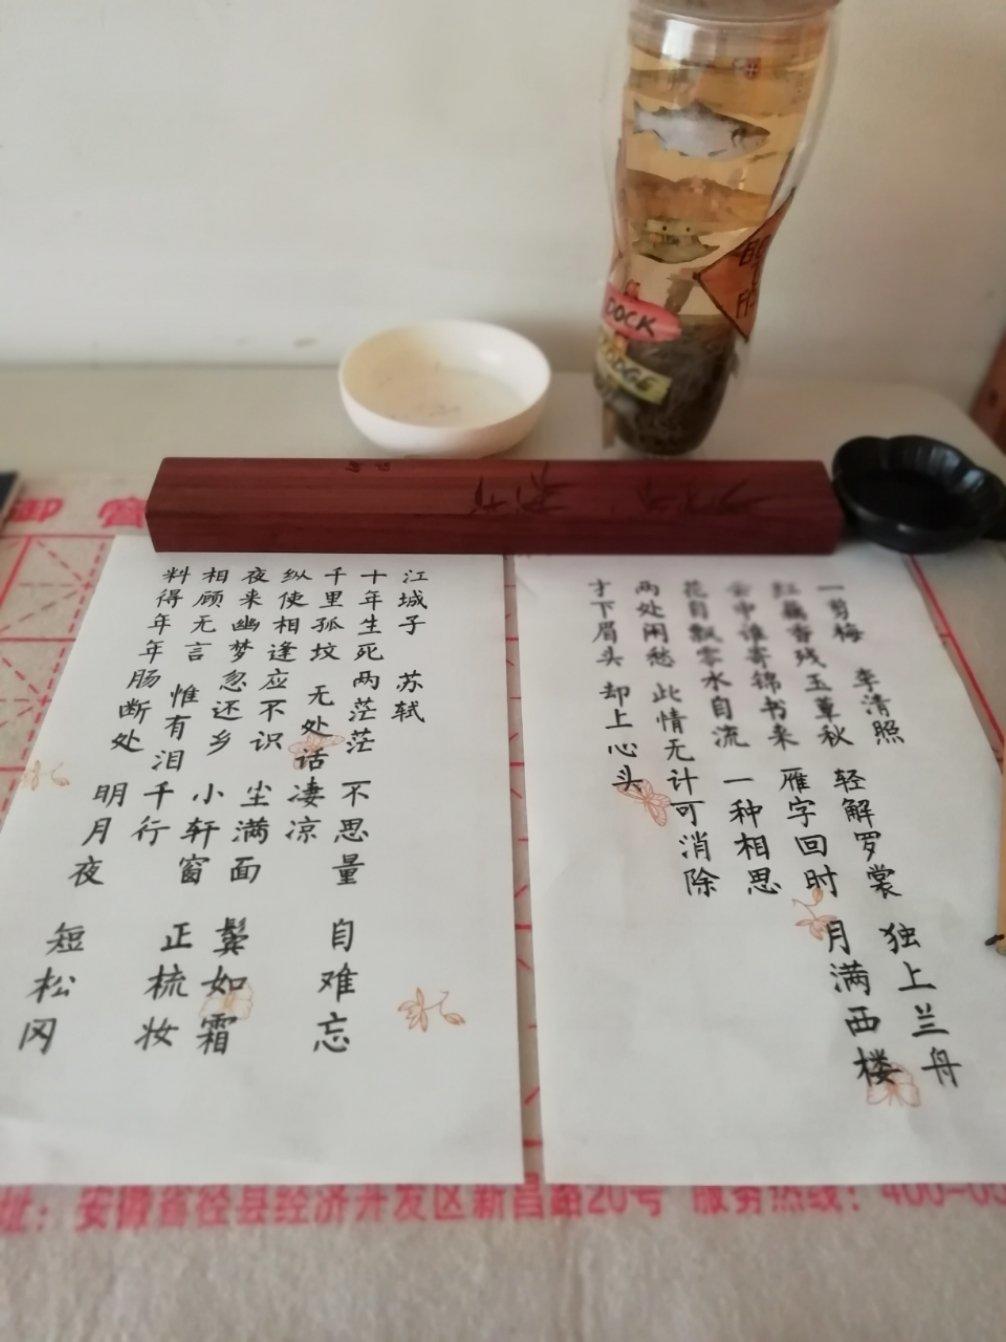 一剪梅 李清照
红藕香残玉簟秋 轻解罗裳 独上兰舟
云中谁寄锦书来 雁字回时 月满西楼
花自飘零水自流 一种相思
两处闲愁 此情无计可消除
才下眉头 却上心头
江城子 苏轼
十年生死两茫茫 不思量 自难忘
千里孤坟 无处话凄凉
纵使相逢应不识 尘满面 鬓如霜
夜来幽梦忽还乡 小轩窗 正梳妆
相顾无言 惟有泪千行
料得年年肠断处 明月夜 短松冈
DOCK
址：安徽省泾县经济开发区新昌路20号 服务热线：400-0